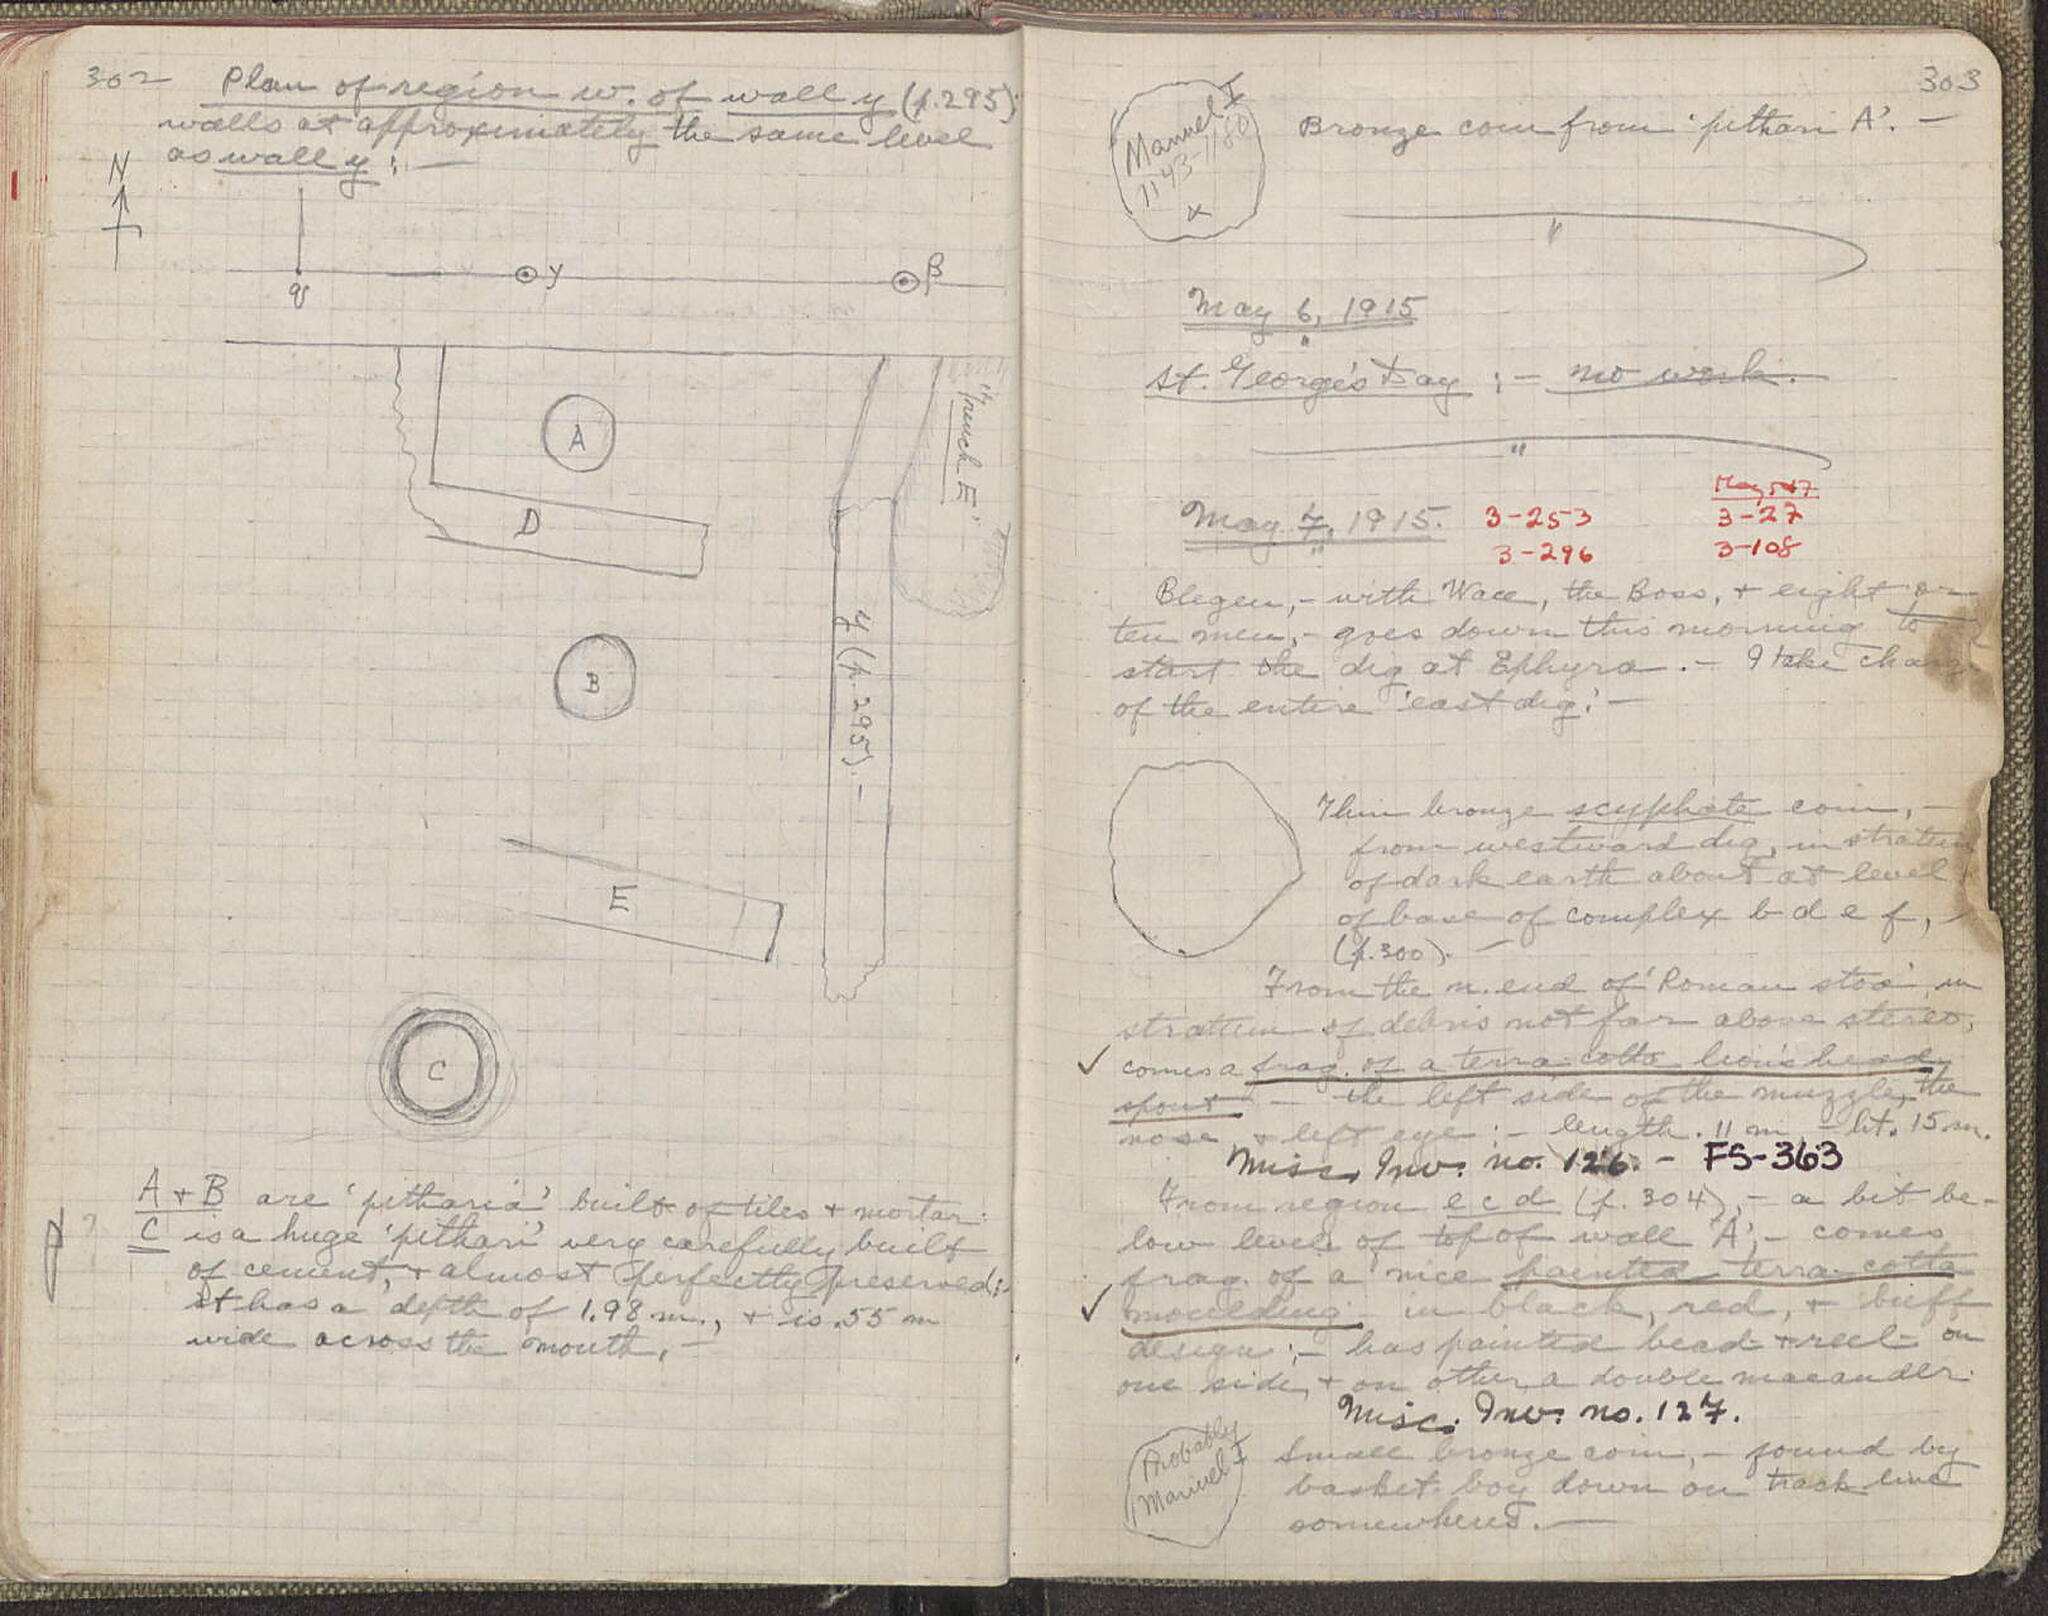 302
Plan of region w. of wall y (p.295);
walls at approximately the same level
as wall y : —
N
q
γ
β
"Trench E".
A
D
y (p. 295). —
B
E
C
A + B are 'pitharia' built of tiles + mortar:
? C is a huge 'pithari' very carefully built
of cement, + almost perfectly preserved;
it has a depth of 1.98 m., + is .55 m
wide across the mouth. —
303
Manuel I
1143-1180
x
Bronze coin from 'pithari A'. —
"
May 6, 1915
"
St. George's Day : — no work.
"
May 7, 1915. 3-253
3-296
May 5+7
3-27
3-108
Blegen, - with Wace, the Boss, + eight or
ten men, - goes down this morning to
start the dig at Ephyra. — I take charge
of the entire 'east dig'. —
Thin bronze scyphate coin, —
from westward dig, in stratum
of dark earth about at level
of base of complex b d e f, —
(p.300). —
From the n. end of 'Roman stoa', in
stratum of debris not far above stereo,
✓ comes a frag. of a terra-cotta lion's head
spout — the left side of the muzzle, the
nose, + left eye : - length .11 m - ht. .15 m.
Misc. Inv. no. 126. - FS-363
From region e c d (p. 304), - a bit be-
low level of top of wall 'A', - comes
frag. of a nice painted terra-cotta
✓ moulding in black, red, + buff
design ; - has painted bead + reel on
one side, + on other a double maeander.
Misc. Inv. no. 127.
Probably
Manuel I
Small bronze coin, - found by
basket boy down on track line
somewheres. —